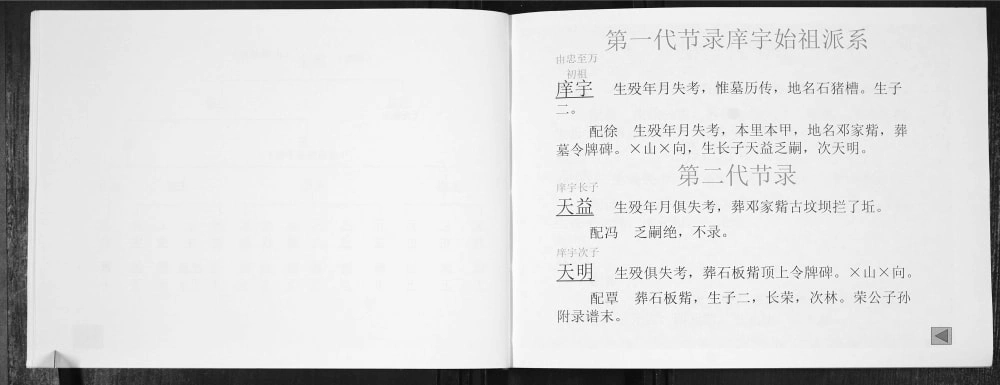 第一代节录庠宇始祖派系
由忠至万
初祖
庠宇　生殁年月失考，惟墓历传，地名石猪槽。生子
二。
配徐　生殁年月失考，本里本甲，地名邓家觜，葬
墓令牌碑。×山×向，生长子天益乏嗣，次天明。
第二代节录
庠宇长子
天益　生殁年月俱失考，葬邓家觜古坟坝拦了坵。
配冯　乏嗣绝，不录。
庠宇次子
天明　生殁俱失考，葬石板觜顶上令牌碑。×山×向。
配覃　葬石板觜，生子二，长荣，次林。荣公子孙
附录谱末。